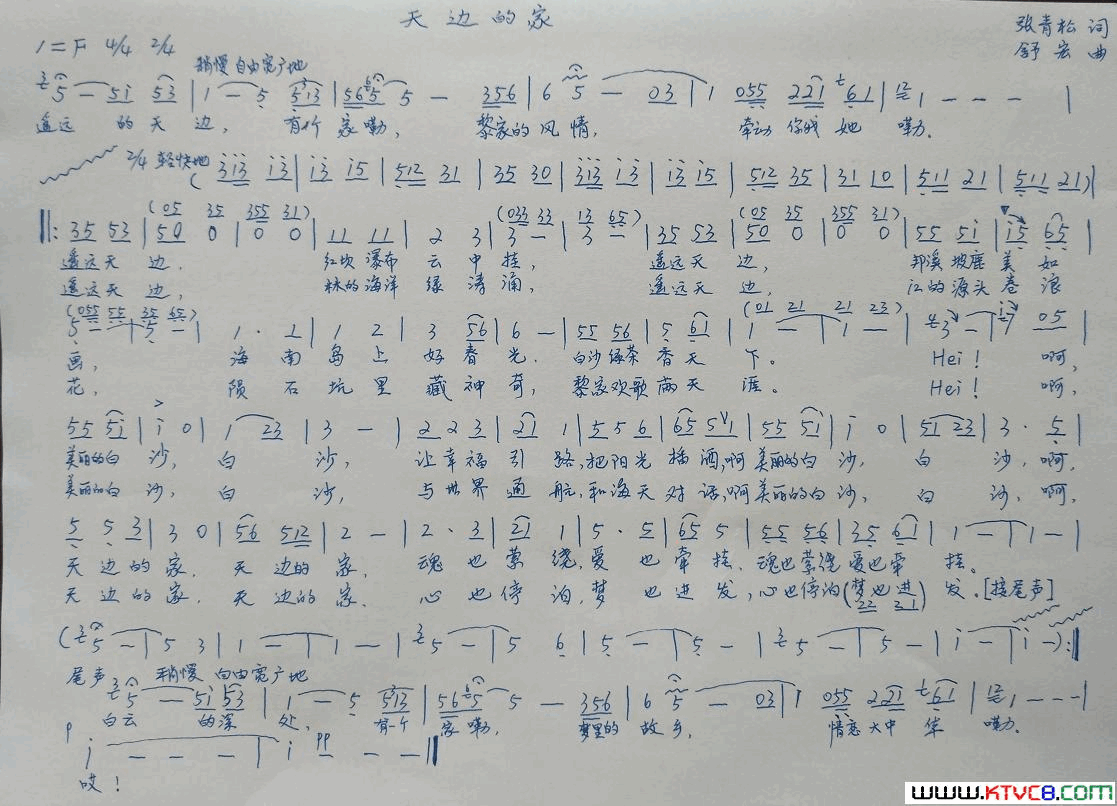 天边的家
张青松 词
1=F 4/4 2/4
舒宏 曲
稍慢 自由宽广地
5 — 5i 53 | 1 — 5 513 | 565 5 — 356 | 6 5 — 03 | 1 055 221 61 | 12 1 — — — |
遥远 的天 边, 有个 家嘞, 黎家的风情, 牵动 你我 她 嘞.
2/4 轻快地
( 313 13 | 13 15 | 512 31 | 35 30 | 313 13 | 13 15 | 512 35 | 31 10 | 511 21 | 511 21 )|
(05 35 355 31) (033 33 13 65) (05 35 355 31)
||: 35 53 | 50 0 | 0 0 | 11 11 | 2 3 | 3 — | 3 — | 35 53 | 50 0 | 0 0 | 55 5i | i5 65 |
遥远天 边, 红坎 瀑布 云 中 挂, 遥远天 边, 邦溪 坡鹿 美 如
遥远天 边, 林的 海洋 绿 涛 涌, 遥远天 边, 江的 源头 卷 浪
(055 55 35 65) (01 21 21 23)
5 — | 5 — | 1 · 1 | 1 2 | 3 56 | 6 — | 55 56 | 5 61 | 1 — | 1 — | 3 — | i 05 |
画, 海 南 岛 上 好 春 光. 白沙 绿茶 香 天 下。 Hei! 啊,
花, 陨 石 坑 里 藏 神 奇, 黎家欢歌 两 天 涯。 Hei! 啊,
55 5i | i 0 | 1 23 | 3 — | 2 2 3 | 21 1 | 5 5 6 | 65 5 1 | 55 5i | i 0 | 51 23 | 3 · 5 |
美丽的白 沙, 白 沙, 让 幸 福 引 路, 把 阳 光 播 洒, 啊 美丽的白 沙, 白 沙, 啊,
美丽的白 沙, 白 沙, 与 世 界 通 航, 和 海 天 对 话, 啊 美丽的白 沙, 白 沙, 啊,
5 5 3 | 3 0 | 56 512 | 2 — | 2 · 3 | 21 1 | 5 · 5 | 65 5 | 55 56 | 35 61 | 1 — | 1 — |
天 边 的 家. 天 边的 家. 魂 也 萦 绕, 爱 也 牵 挂. 魂也萦绕 爱也牵 挂.
天 边 的 家. 天 边 的 家. 心 也 停 泊, 梦 也 进 发, 心也停泊 (梦也进) 发. [接尾声]
22 21
( 5 — | 5 3 | 1 — | 1 — | 5 — | 5 6 | 5 — | 5 — | 5 — | 5 — | i — | i — ) :||
尾声 稍慢 自由宽广地
5 — 51 53 | 1 — 5 513 | 56 5 5 — 356 | 6 5 — 03 | 1 055 221 61 | 12 1 — — — |
白云 的深 处, 有个 家嘞, 梦里的 故 乡, 情恋 大中 华 嘞.
p i — — — | i pp — — — ||
哎!
www.KTVC8.com